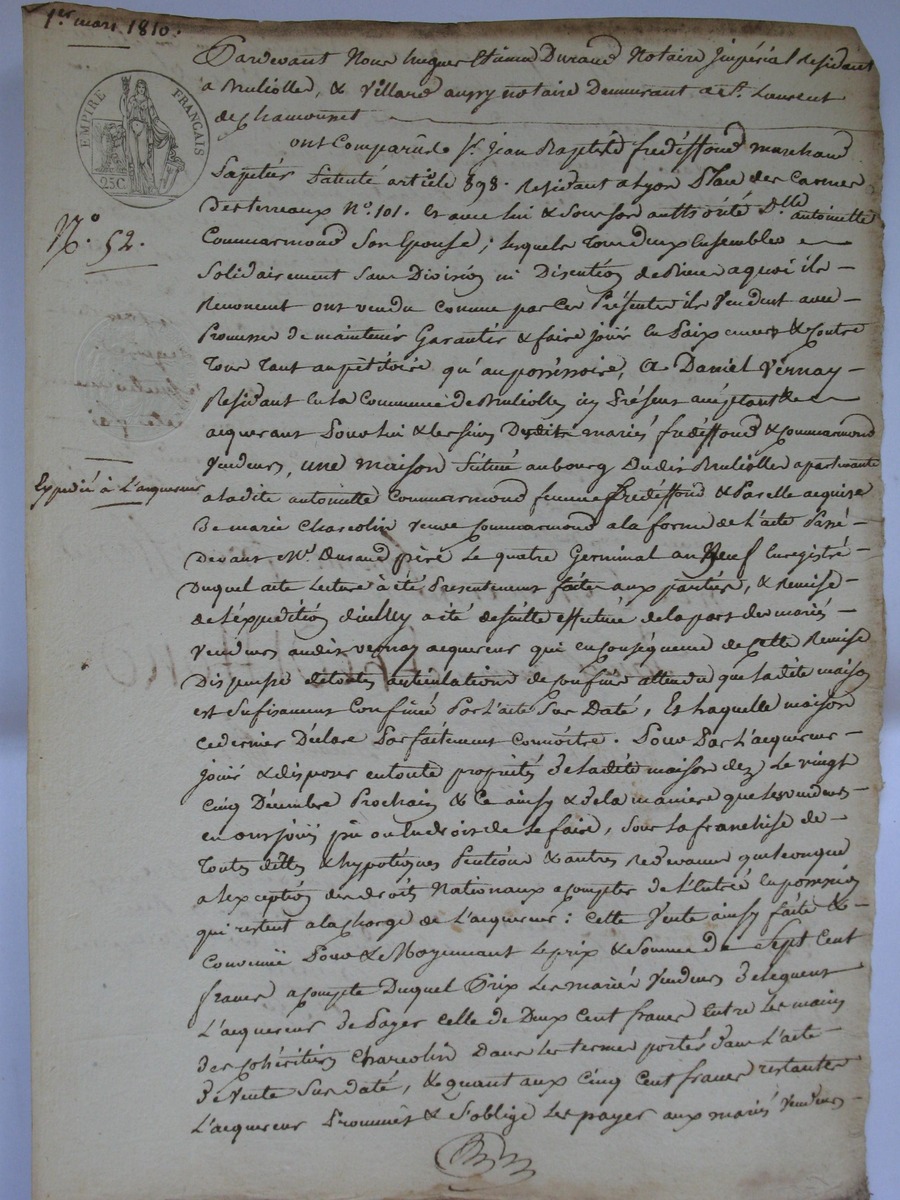 1er mars 1810.
EMPIRE FRANÇAIS
25C
N.° 52.
Expedié à L'acquereur
Pardevant Nous hugues Etienne Durand Notaire Impérial Résidant
a Bruliolles, & Villard aussy notaire Demeurant a St. Laurent
de Chamousset
ont Comparû le Sr. Jean Baptiste fredeffond marchand
Patenté article 898. Residant a Lyon Place des Carmes
Des terreaux N.° 101. Et avec lui & de Son authorité D.lle antoinette
Commarmond Son Epouse; lesquels Tous deux Ensembles
Solidairement Sans Division ni Discution de Biens a quoi ils
Renoncent ont vendu comme par ces Présentes ils Vendent avec
Promesse de maintenir Garantir & faire jouir en Paix envers & Contre
Tous Tant au pétitoire qu'au possessoire, A Daniel Vernay
Résidant en la Commune de Bruliolles icy Présent acceptant &
acquerant Pour lui & les siens Desdits mariés fredeffond & Commarmond
Vendeurs, une maison Située au bourg Dudit Bruliolles apartenante
a ladite antoinette Commarmond femme fredeffond & Par elle acquise
De marie Charcolin veuve Commarmond a la forme de L'acte Passé
Devant Me. Durand père Le quatre Germinal an Neuf Enregistré
Duquel acte Lecture à été Présentement faite aux parties, & Remise
de l'expedition d'icelluy a été de suitte effectuée de la part des mariés
Vendeurs audit vernay acquereur qui en conséquence de cette Remise
Dispense de toutes articulations de confins attendu que ladite maison
est Sufisament Confinée Par L'acte Sus Daté, Et Laquelle maison
ce dernier Déclare Parfaitement Connoitre. Pour Par L'acquereur
jouir & disposer en toute propriété de ladite maison dez Le vingt
cinq Décembre Prochain & Ce ainsy & de la maniere que les vendeurs
en ont joui pû ou eu droit de Le faire, Sous La franchise de
Toutes dettes & hypotèques Pentions & autres redevances quelconques
a l'exception des droits Nationaux a compter de L'Entrée en possession
qui restent a la Charge de L'acquereur: Cette Vente ainsy faite &
Convenüe Pour & Moyennant Le prix & Somme de Sept Cent
francs a compte Duquel Prix Les mariés Vendeurs Délèguent
L'acquereur de Payer celle de Deux Cent francs Entre Les mains
des cohéritiers Charcolin Dans Les termes portés dans L'acte
De Vente Sus daté, & quant aux Cinq Cent francs restantes
L'acquereur Promet & S'oblige Les payer aux mariés Vendeurs